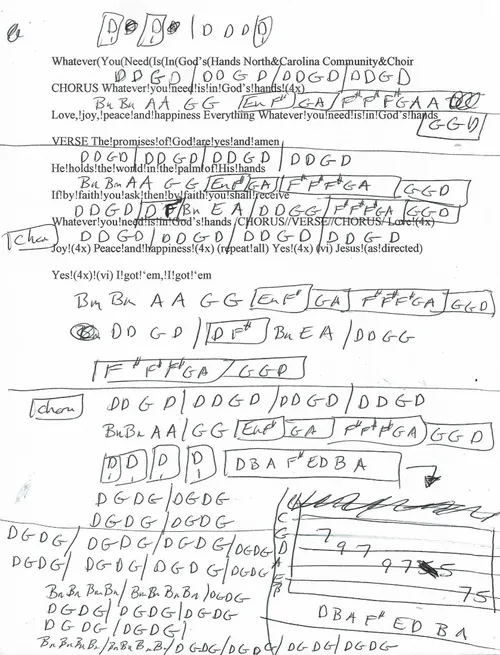 D D D | D D D D
Whatever(You(Need(Is(In(God's(Hands North&Carolina Community&Choir
D D G D / D D G D / D D G D / D D G D
CHORUS Whatever!you!need!is!in!God's!hands!(4x)
Bm Bm A A G G Em F# G A / F# F# F# G A A
Love,!joy,!peace!and!happiness Everything Whatever!you!need!is!in!God's!hands
G G D
VERSE The!promises!of!God!are!yes!and!amen
D D G D / D D G D / D D G D / D D G D
He!holds!the!world!in!the!palm!of!His!hands
Bm Bm A A G G Em F# G A / F# F# F# G A G G D
If!by!faith!you!ask!then!by!faith!you!shall!receive
D D G D / D F# Bm E A / D D G G / F# F# F# G A / G G D
Whatever!you!need!is!in!God's!hands /CHORUS//VERSE//CHORUS/ Love!(4x)
D D G D / D D G D / D D G D / D D G D
Joy!(4x) Peace!and!happiness!(4x) (repeat!all) Yes!(4x) (vi) Jesus!(as!directed)
Yes!(4x)!(vi) I!got!'em,!I!got!'em
Bm Bm A A G G Em F# G A F# F# F# G A G G D
D D G D / D F# Bm E A / D D G G
F# F# F# G A / G G D
D D G D / D D G D / D D G D / D D G D
Bm Bm A A / G G Em F# G A F# F# F# G A G G D
D D D D D B A F# E D B A
D G D G / D G D G
D G D G / D G D G
C
G 7
D G D G / D G D G / D G D G / D G D G
D 9 7
D G D G / D G D G / D G D G / D G D G
A 9 7 5
E 7 5
B
Bm Bm Bm Bm / Bm Bm Bm Bm / D G D G
D G D G / D G D G / D G D G
D B A F# E D B A
D G D G / D G D G /
Bm Bm Bm Bm / Bm Bm Bm Bm / D G D G / D G D G / D G D G / D G D G